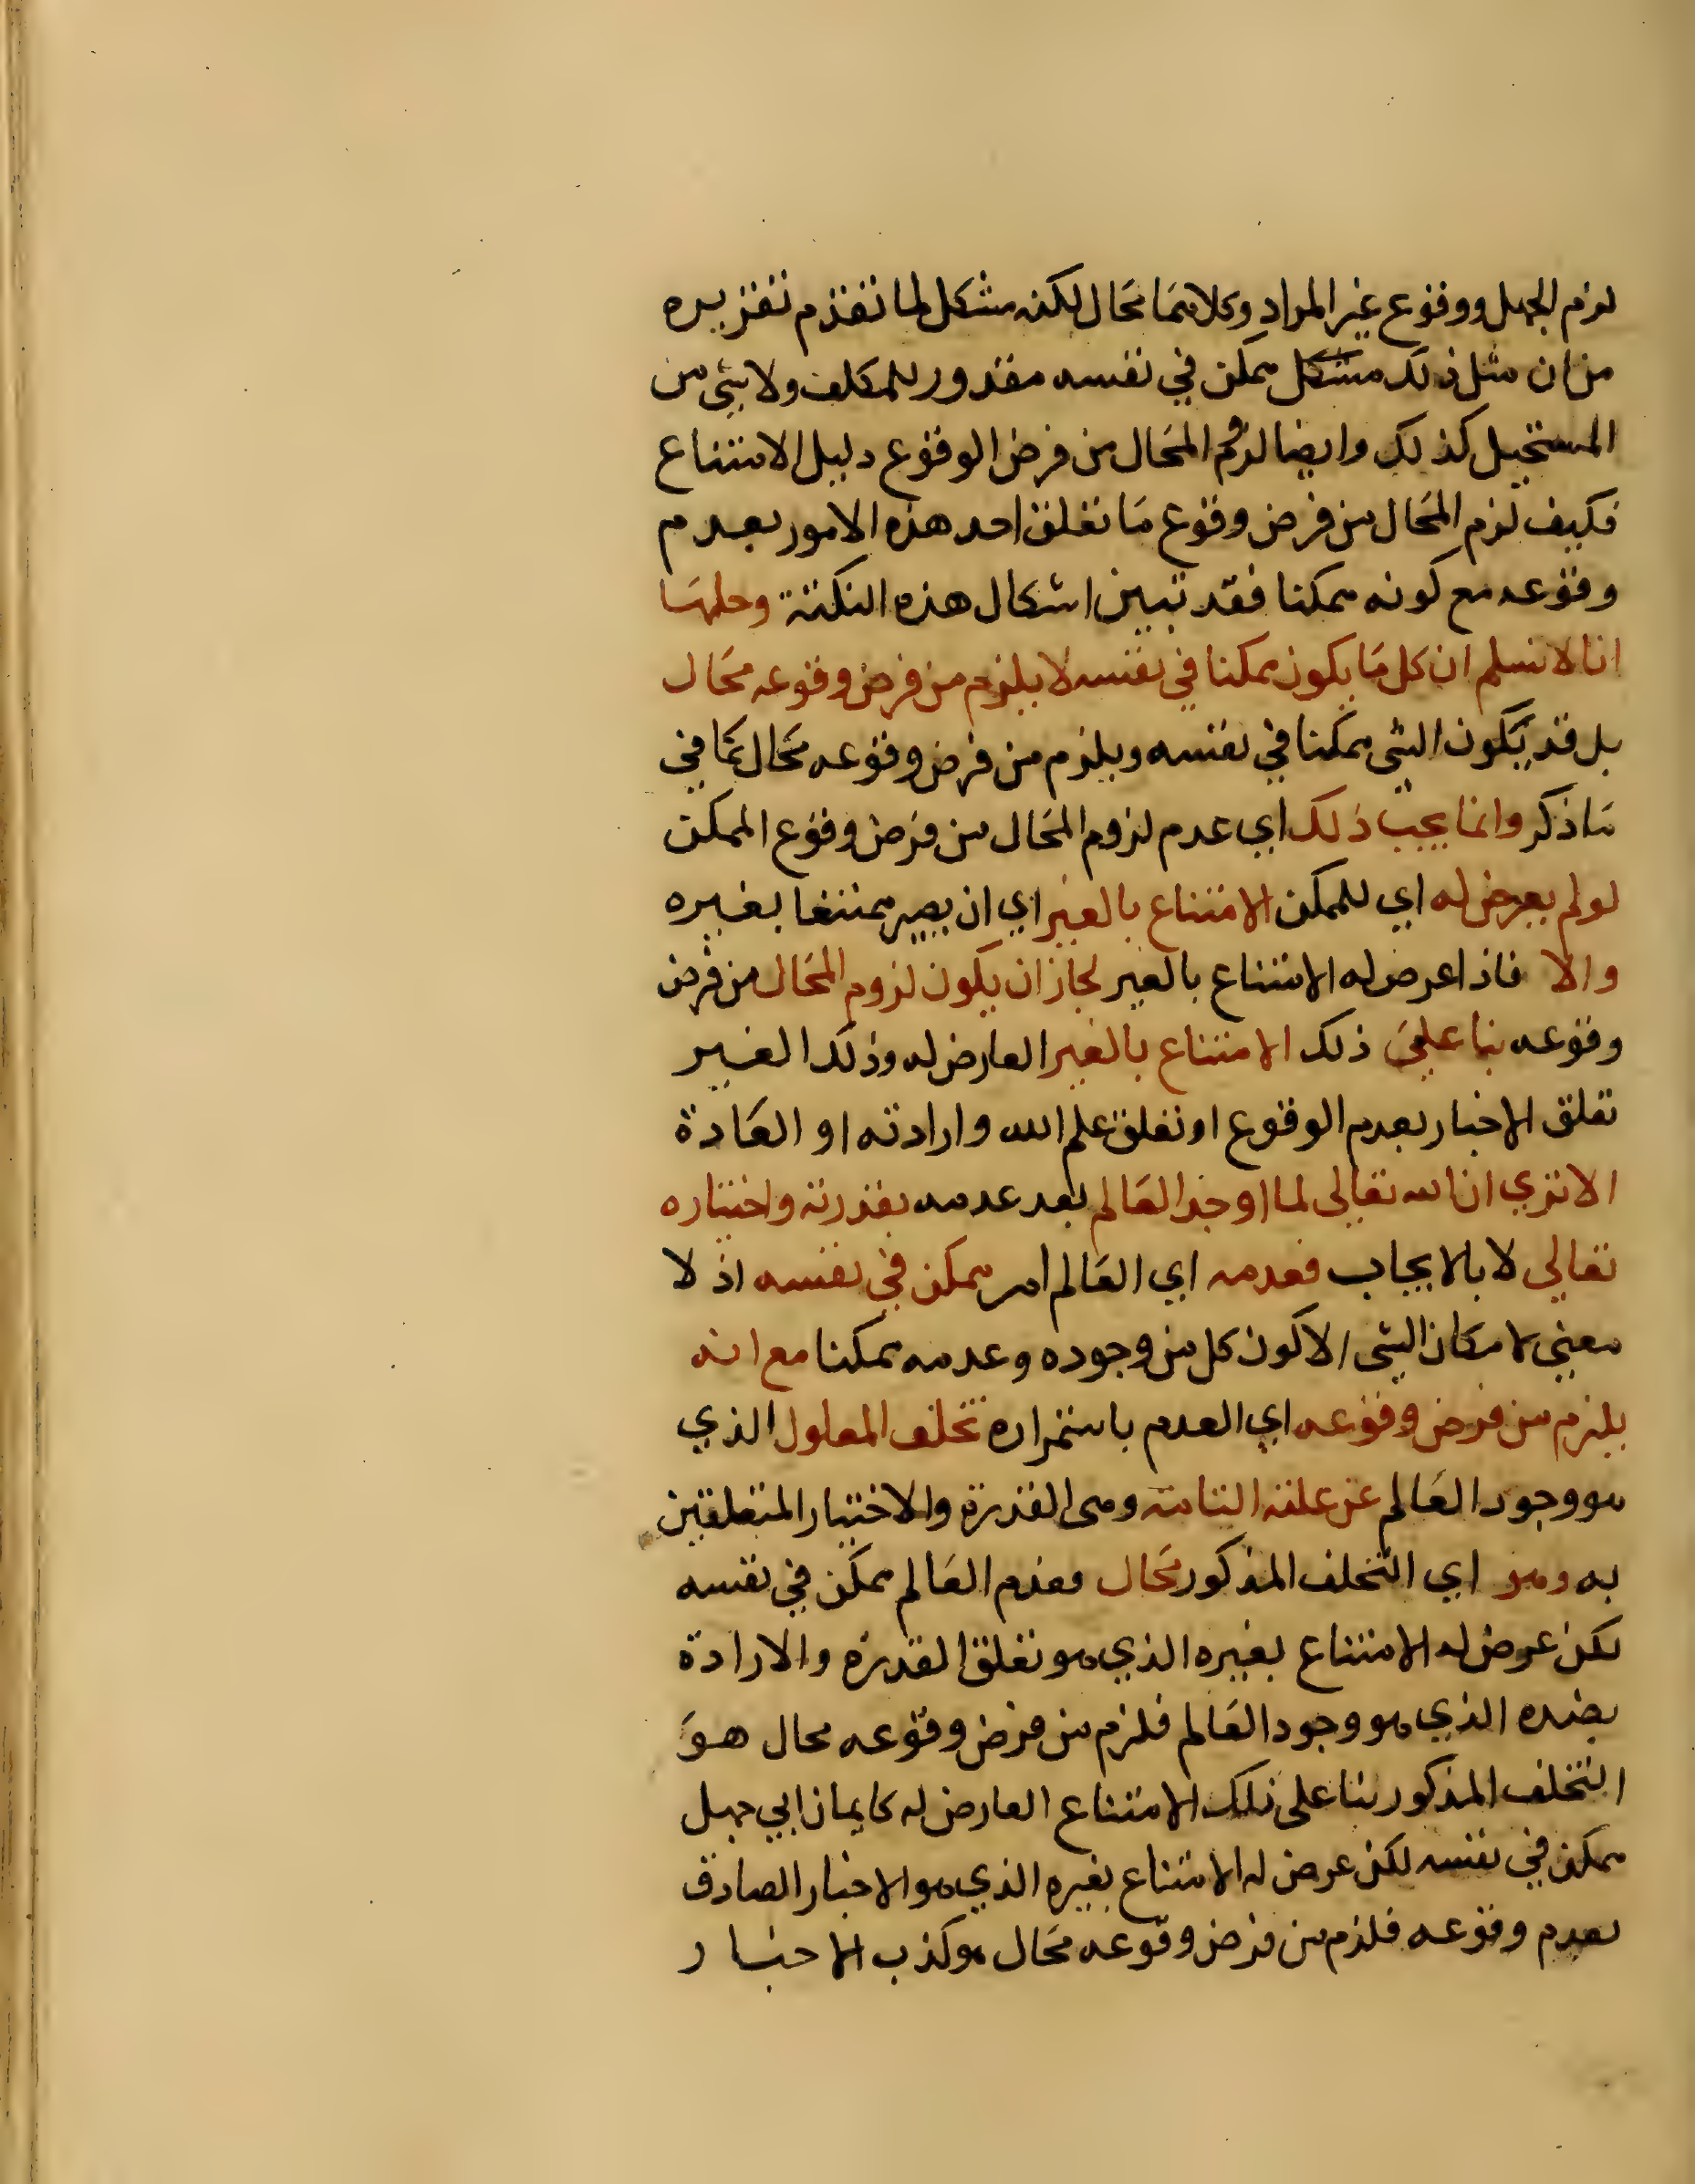 لزم الجهل ووقوع غير المراد وكلاهما محال لكنه مشكل لما تقدم تقريره
من ان مثل ذلك مشكل ممكن في نفسه مقدور للمكلف ولا شي من
المستحيل كذلك وايضا لزوم المحال من فرض الوقوع دليل الامتناع
فكيف لزم المحال من فرض وقوع ما تعلق احد هذه الامور بعدم
وقوعه مع كونه ممكنا فقد تبين اشكال هذه النكتة وحلها
انا لا نسلم ان كل ما يكون ممكنا في نفسه لا يلزم من فرض وقوعه محال
بل قد يكون الشي ممكنا في نفسه ويلزم من فرض وقوعه محال كما في
ما ذكر وانما يجب ذلك اي عدم لزوم المحال من فرض وقوع الممكن
لو لم يعرض له اي للممكن الامتناع بالغير اي ان يصير ممتنعا بغيره
والا فاذا عرض له الامتناع بالغير لجاز ان يكون لزوم المحال من فرض
وقوعه بنا على ذلك الامتناع بالغير العارض له وذلك الغير
تعلق الاخبار بعدم الوقوع او تعلق علم الله وارادته او العادة
الا تري ان الله تعالى لما اوجد العالم بعد عدمه بقدرته واختياره
تعالي لا بالايجاب فعدمه اي العالم امر ممكن في نفسه اذ لا
معني لامكان الشي الا كون كل من وجوده وعدمه ممكنا مع انه
يلزم من فرض وقوعه اي العدم باستمراره تخلف المعلول الذي
هو وجود العالم عن علته التامة وهي القدرة والاختيار المتعلقين
به وهو اي التخلف المذكور محال فعدم العالم ممكن في نفسه
لكن عرض له الامتناع بغيره الذي هو تعلق القدرة والارادة
بضده الذي هو وجود العالم فلزم من فرض وقوعه محال هو
التخلف المذكور بنا على ذلك الامتناع العارض له كايمان ابي جهل
ممكن في نفسه لكن عرض له الامتناع بغيره الذي هو الاخبار الصادق
بعدم وقوعه فلزم من فرض وقوعه محال هو كذب الاخبار